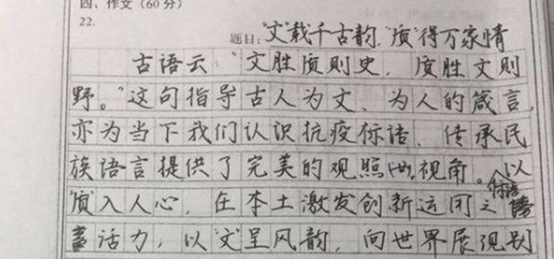 四、作文(60分)
22.
题目:“文”载千古韵,“质”得万家情
古语云:“文胜质则史,质胜文则
野。”这句指导古人为文、为人的箴言,
亦为当下我们认识抗疫标语、传承民
族语言提供了完美的观照视角。以
“质”入人心,在本土激发创新运用之
活力,以“文”呈风韵,向世界展现别